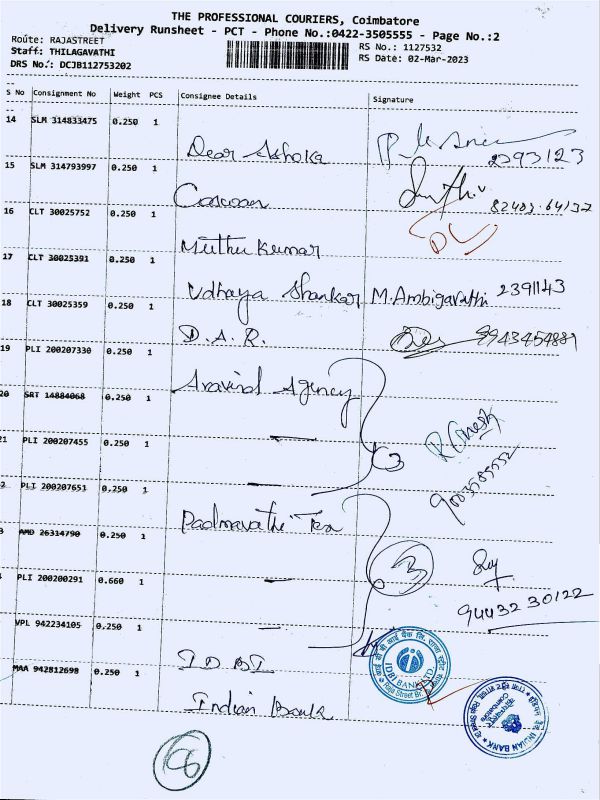 THE PROFESSIONAL COURIERS, Coimbatore
Delivery Runsheet - PCT - Phone No.:0422-3505555 - Page No.:2
Route: RAJASTREET
Staff: THILAGAVATHI
DRS No.: DCJB112753202
RS No.: 1127532
RS Date: 02-Mar-2023
S No Consignment No Weight PCS Consignee Details Signature
14 SLM 314833475 0.250 1 Dear Ashoka 2393123
15 SLM 314793997 0.250 1 Cocoon
16 CLT 30025752 0.250 1 Muthu Kumar
17 CLT 30025391 0.250 1 Udhaya Shankar M.Ambigavathi 2391143
18 CLT 30025359 0.250 1 D.A.R. 9943454881
19 PLI 200207330 0.250 1 Aravind Agency
20 SRT 14884068 0.250 1
1 PLI 200207455 0.250 1 3 R Ganesh
2 PLI 200207651 0.250 1 Padmavathi Tex
3 AMD 26314790 0.250 1 3
PLI 200200291 0.660 1 94432 30122
VPL 942234105 0.250 1 IDBI
MAA 942812698 0.250 1 Indian Bank
IDBI BANK LTD.
Raja Street Br.
INDIAN BANK
Coimbatore